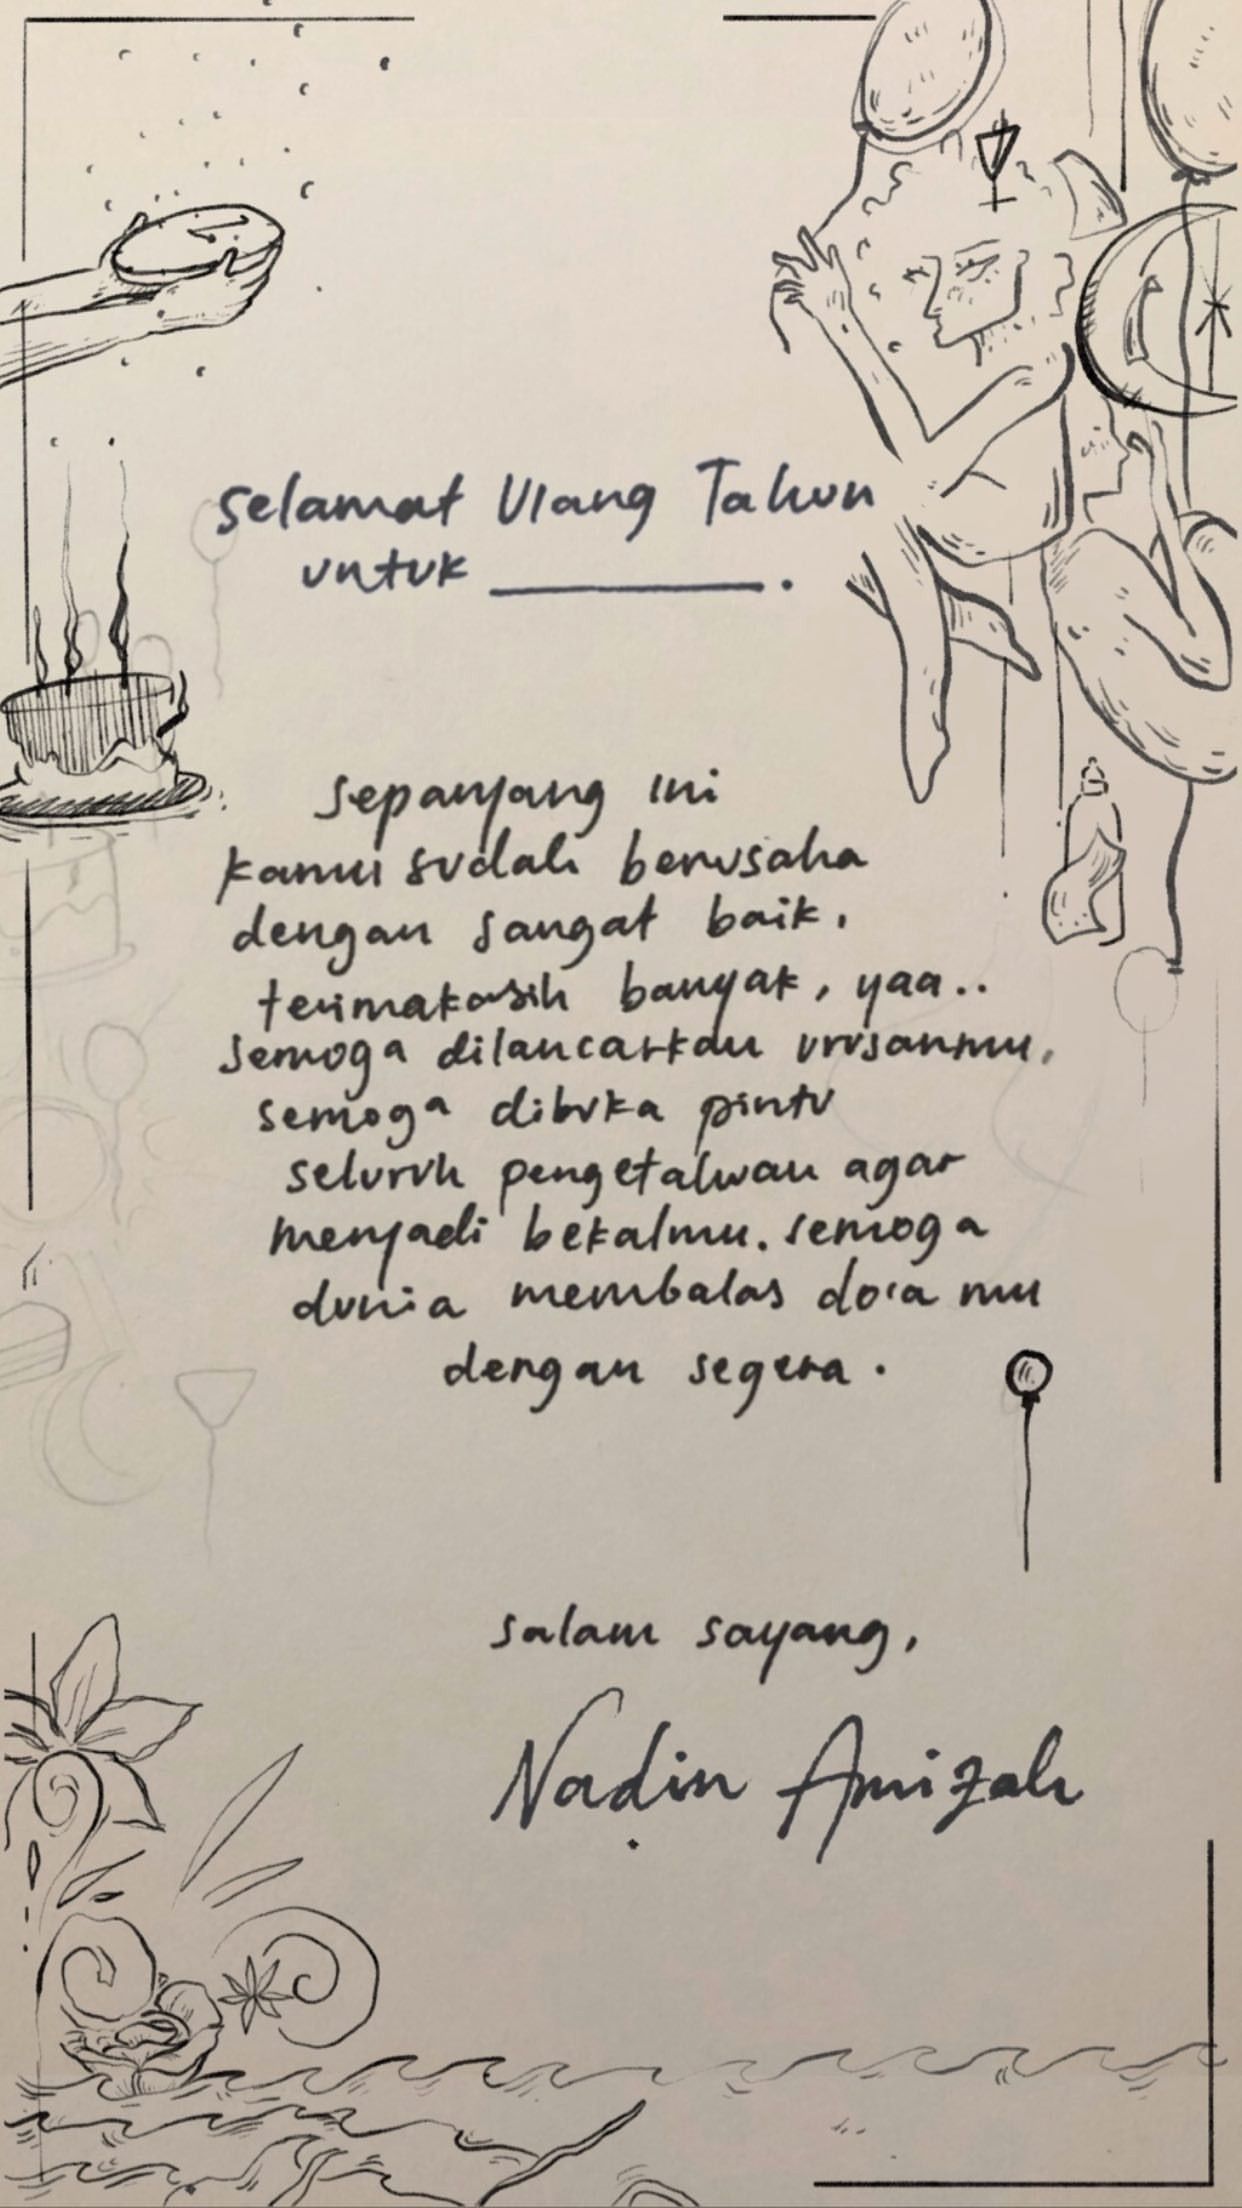 Selamat Ulang Tahun
untuk ________.
Sepanjang ini
kamu sudah berusaha
dengan sangat baik.
terimakasih banyak, yaa..
semoga dilancarkan urusanmu.
semoga dibuka pintu
seluruh pengetahuan agar
menjadi bekalmu. semoga
dunia membalas do'a mu
dengan segera.
salam sayang,
Nadin Amizah